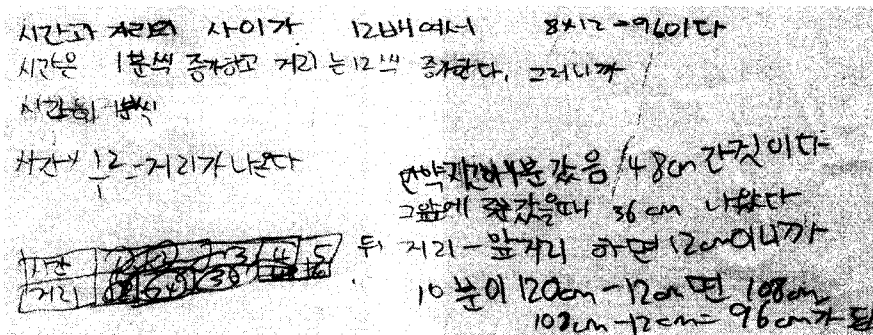 시간과 거리의 사이가 12배여서 8×12=96이다
시간은 1분씩 증가하고 거리는 12씩 증가한다. 그러니까
시간× 12/1 = 거리가 나온다
만약 4분 갔음 48cm 간것이다
그앞에 36cm 나왔다
뒤 거리-앞거리 하면 12cm이니까
10분이 120cm-12cm면 108cm
108cm-12cm=96cm가 됨
시간 1 2 3 4 5
거리 12 24 36